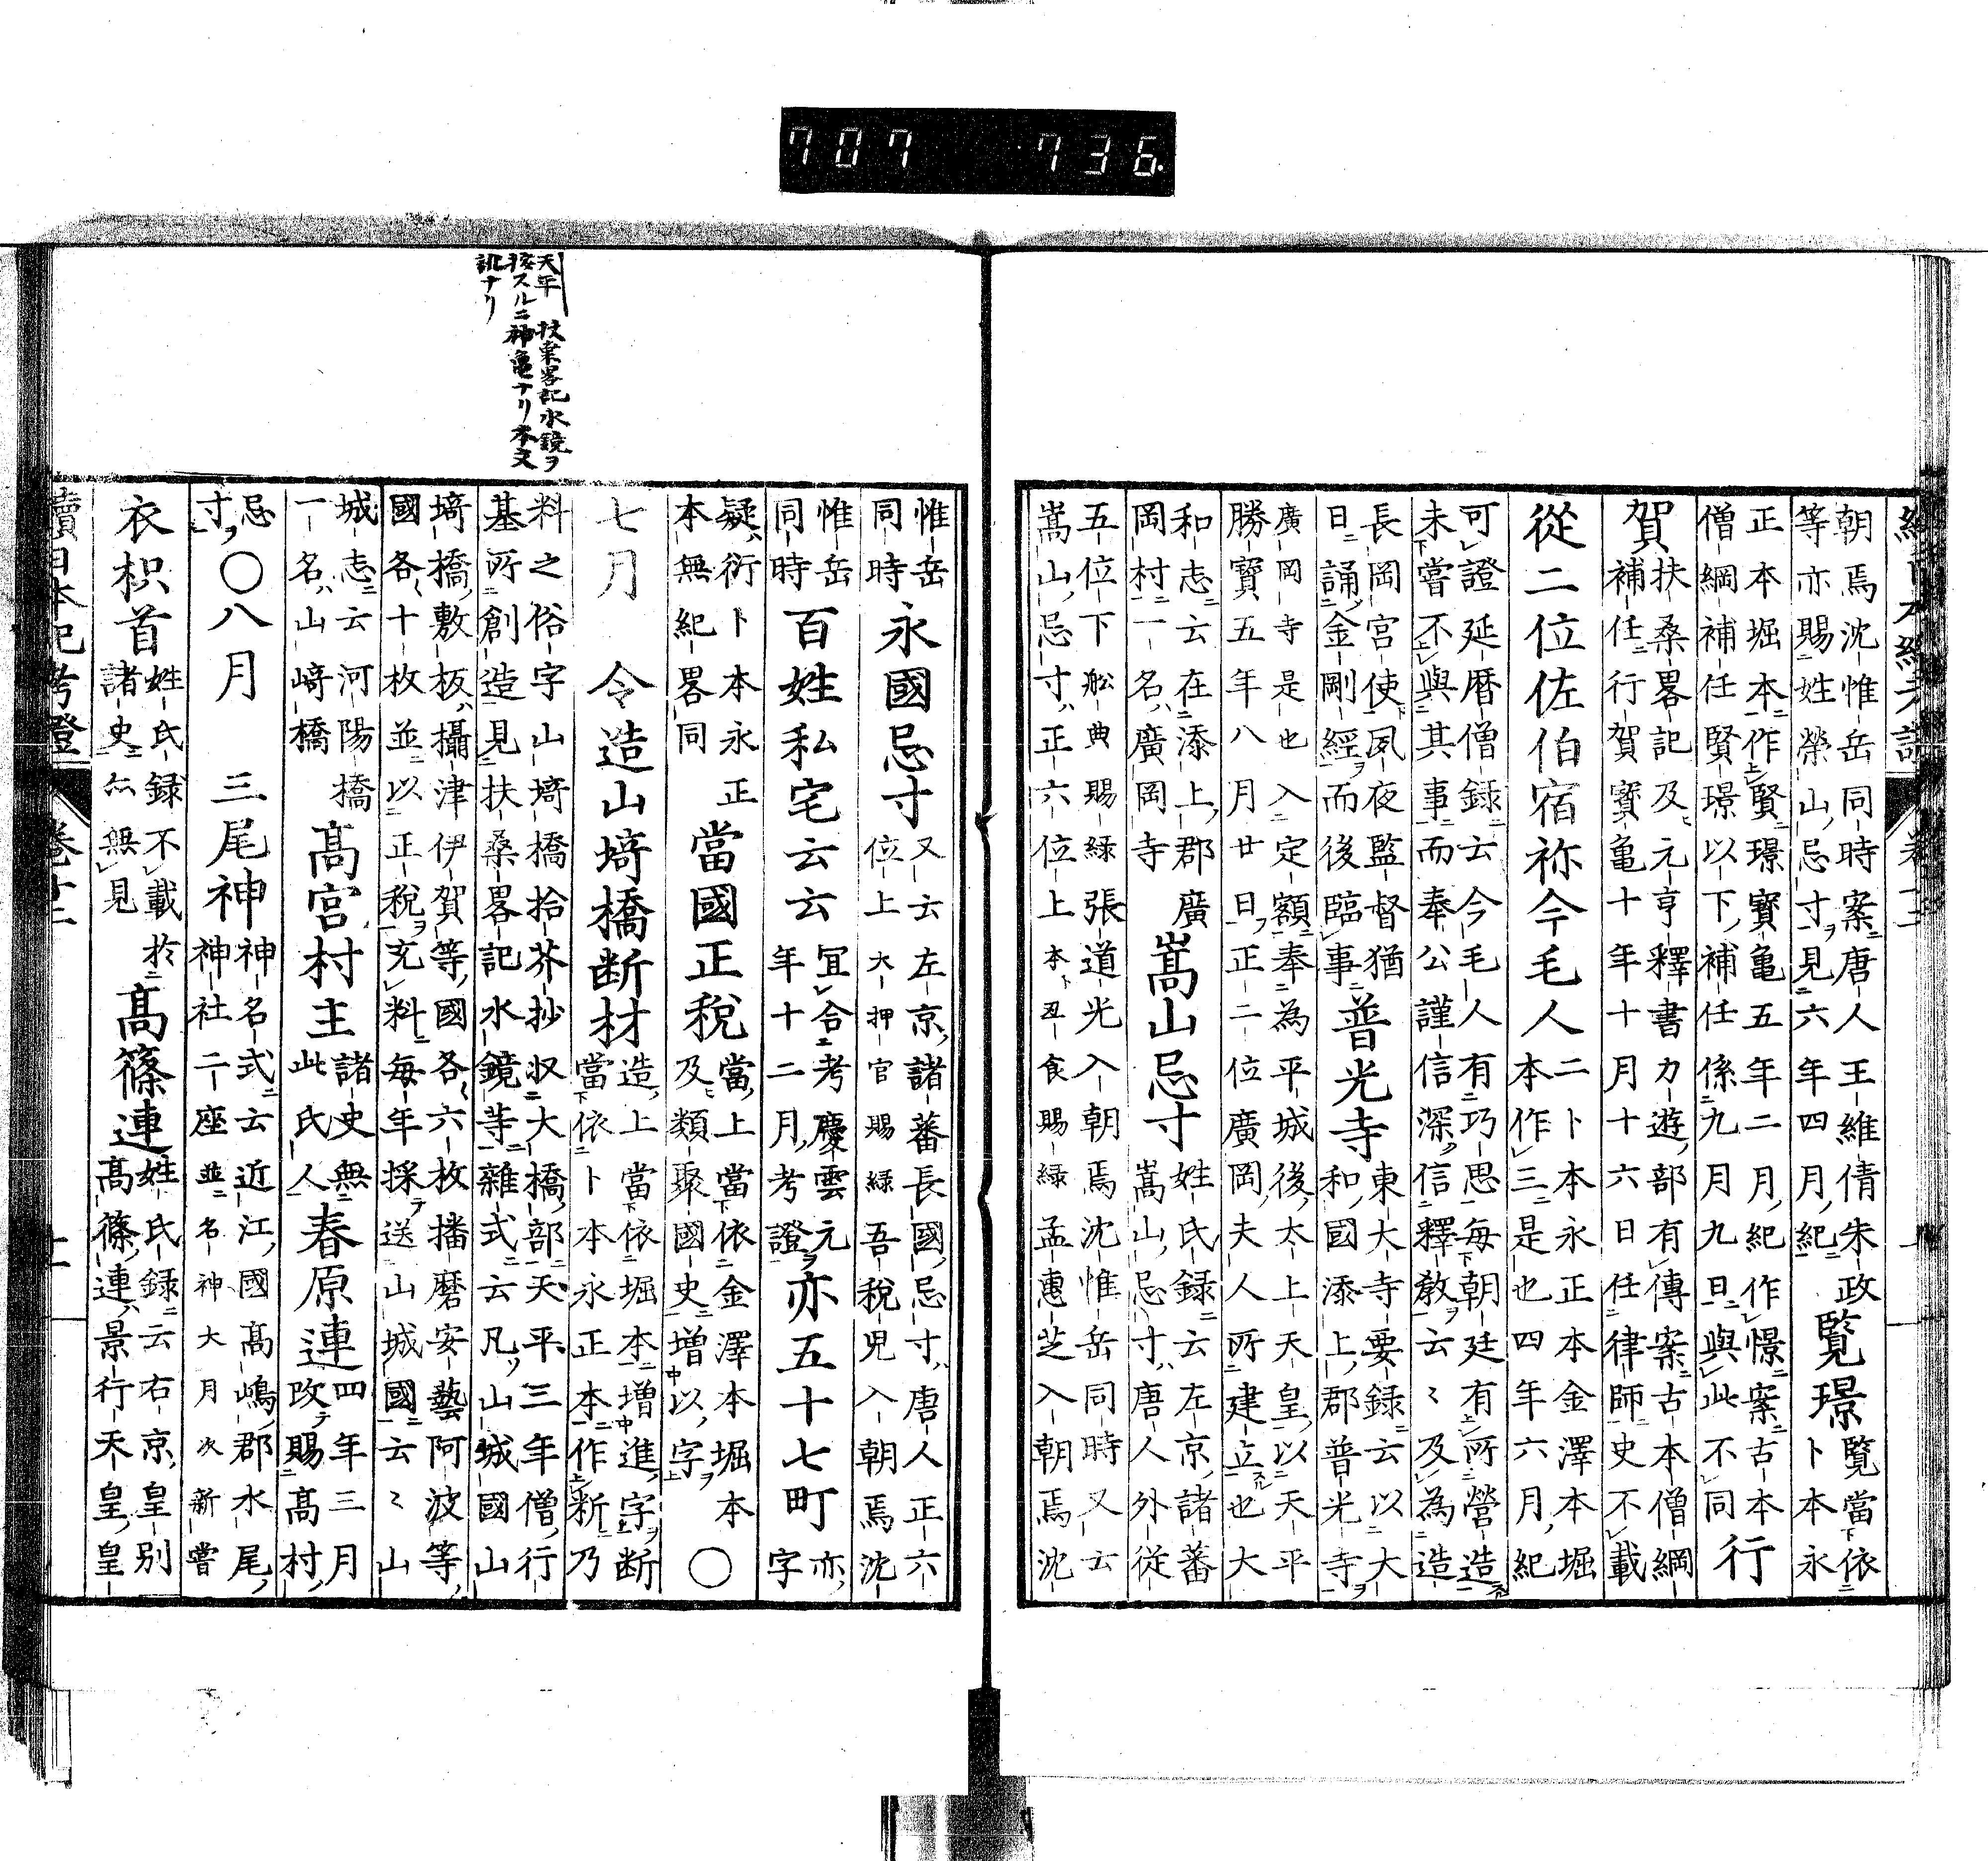 707 736
朝焉沈惟岳同時案唐人王維倩朱政
等亦賜姓榮山忌寸見六年四月紀
覧璟
覧當依
卜本永
正本堀本作賢璟寶亀五年二月紀作憬案古本
僧綱補任賢璟以下補任係九月九日與此不同
行
賀
扶桑畧記及元亨釋書力遊部有傳案古本僧綱
補任行賀寳亀十年十月十六日任律師史不載
從二位佐伯宿祢今毛人
二卜本永正本金澤本堀
本作三是也四年六月紀
可證延暦僧録云今毛人有巧思毎朝廷有所營造
未嘗不與其事而奉公謹信深信釋教云〻及為造
長岡宮使夙夜監督猶
日誦金剛經而後臨事
普光寺
東大寺要録云以大
和國添上郡普光寺
廣岡寺是也入定額奉為平城後太上天皇以天平
勝寶五年八月廿日正二位廣岡夫人所建立也大
和志云在添上郡廣
岡村一名廣岡寺
嵩山忌寸
姓氏録云左京諸蕃
嵩山忌寸唐人外從
五位下舩典賜緑張道光入朝焉沈惟岳同時又云
嵩山忌寸正六位上本丑食賜緑孟惠芝入朝焉沈
惟岳
同時
永國忌寸
又云左京諸蕃長國忌寸唐人正六
位上大押官賜緑吾稅兒入朝焉沈
惟岳
同時
百姓私宅云云
冝合考慶雲元
年十二月考證
亦五十七町
亦
字
疑衍卜本永正
本無紀畧同
當國正稅
當上當依金澤本堀本
及類聚國史増以字
〇
七月
令造山﨑橋断材
造上當依堀本増進字断
當依卜本永正本作新乃
料之俗字山﨑橋拾芥抄収大橋部天平三年僧行
基所創造見扶桑畧記水鏡等雜式云凡山城國山
﨑橋敷板攝津伊賀等國各六枚播磨安藝阿波等
國各十枚並以正稅充料毎年採送山城國云〻山
城志云河陽橋
一名山﨑橋
髙宮村主
諸史無
此氏人
春原連
四年三月
改賜髙村
忌
寸
〇八月
三尾神
神名式云近江國髙嶋郡水尾
神社二座並名神大月次新嘗
衣枳首
姓氏録不載於
諸史亦無見
髙篠連
姓氏録云右京皇別
髙篠連景行天皇皇
續日本紀考證
卷十二
天平 扶桒畧記水鏡ヲ
按スルニ神亀ナリ本文
訛ナリ